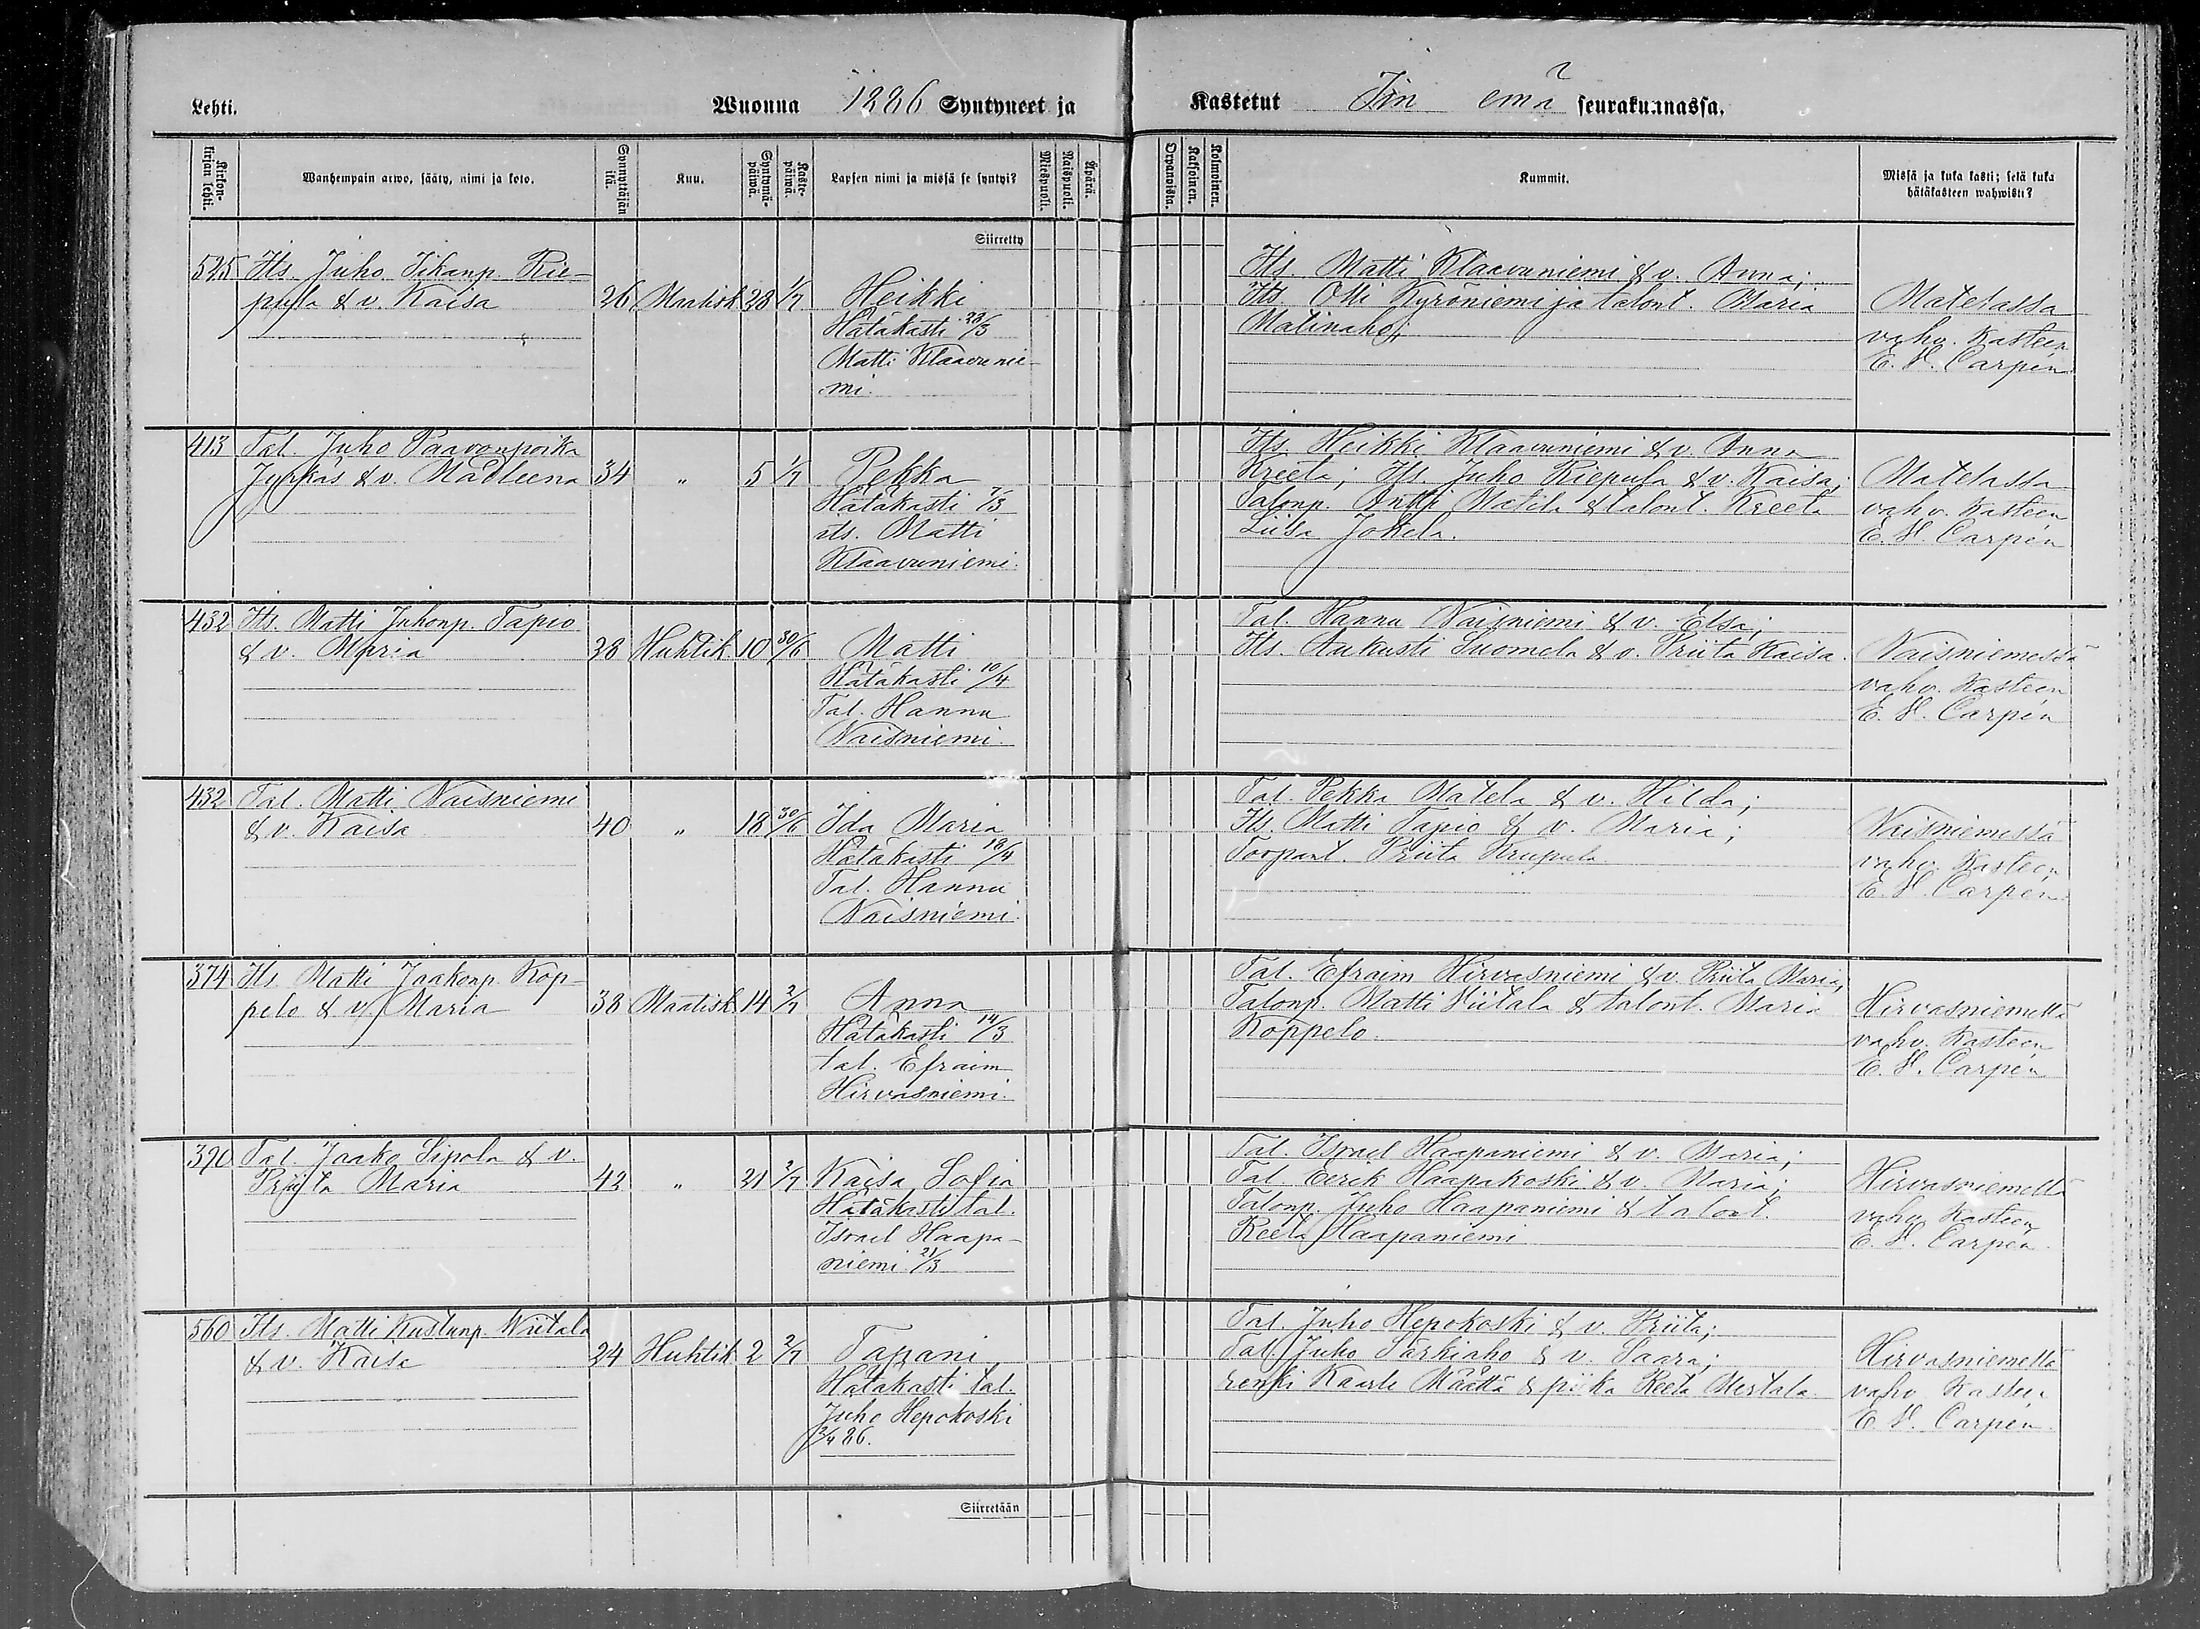 Lehti. Wuonna 1886 Syntyneet ja Kastetut Iin emä seurakunnassa.
Kirkon-kirjan lehti. Wanhempain arwo, sääty, nimi ja koto. Synnyttäjän ikä. Kuu. Syntymä-päiwä. Kaste-päiwä. Lapsen nimi ja missä se syntyi? Miespuoli. Naispuoli. Äpärä. Orpanoista. Kaksoinen. Kolmoinen. Kummit. Missä ja kuka kasti; sekä kuka hätäkasteen wahwisti?
Siirretty
525 Its. Juho Iikanp. Rie-
pula & v. Kaisa 26 Maalisk 28 1/7 Heikki
Hätäkasti 28/3
Matti Klaavunie-
mi.
Its. Matti Klaavuniemi & v. Anna;
Its. Olli Kyröniemi ja talont. Maria
Matinaho;
Matelassa
vahv. kasteen
E. V. Carpén
413 Tal. Juho Paavonpoika
Jyrkäs & v. Madleena 34 " 5 1/7 Pekka
Hätäkasti 7/3
its. Matti
Klaavuniemi.
Its. Heikki Klaavuniemi & v. Anna
Kreeta; Its. Juho Riepula & v. Kaisa;
Talonp. Antti Matela & talont. Kreeta
Liisa Jokela.
Matelassa
vahv. kasteen
E. V. Carpén
432 Its. Matti Juhonp. Tapio
& v. Maria 38 Huhtik 10 30/6 Matti
Hätäkasti 10/4
Tal. Hannu
Naisniemi.
Tal. Hannu Naisniemi & v. Elsa;
Its. Aukusti Suomela & v. Priita Kaisa.
Naisniemessä
vahv. kasteen
E. V. Carpén
432 Tal. Matti Naisniemi
& v. Kaisa 40 " 18 30/6 Ida Maria
Hätäkasti 18/4
Tal. Hannu
Naisniemi.
Tal. Pekka Matela & v. Hilda;
Its. Matti Tapio & v. Maria;
Torpant. Priita
Naisniemessä
vahv. kasteen
E. V. Carpén
374 Its. Matti Jaakonp. Kop-
pelo & v. Maria 38 Maalisk 14 2/7 Anna
Hätäkasti 14/3
tal. Efraim
Hirvasniemi.
Tal. Efraim Hirvasniemi & v. Priita Maria;
Talonp. Matti Viitala & talont. Maria
Koppelo.
Hirvasniemellä
vahv. kasteen
E. V. Carpén
390 Tal. Jaako Sipola & v.
Priita Maria 42 " 21 2/7 Kaisa Sofia
Hätäkasti tal.
Israel Haapa-
niemi 21/3
Tal. Israel Haapaniemi & v. Maria;
Tal. Eerik Haapakoski & v. Maria;
Talonp. Juho Haapaniemi & talont.
Reeta Haapaniemi
Hirvasniemellä
vahv. kasteen
E. V. Carpén.
560 Its. Matti Kustunp. Wiitala
& v. Kaisa 24 Huhtik 2 2/7 Tapani
Hätäkasti tal.
Juho Hepokoski
3/4 86.
Tal. Juho Hepokoski & v. Priita;
Tal. Juho Särkiaho & v. Saara;
renki Kaarle Määttä & piika Reeta Mertala.
Hirvasniemellä
vahv. kasteen
E. V. Carpén.
Siirretään